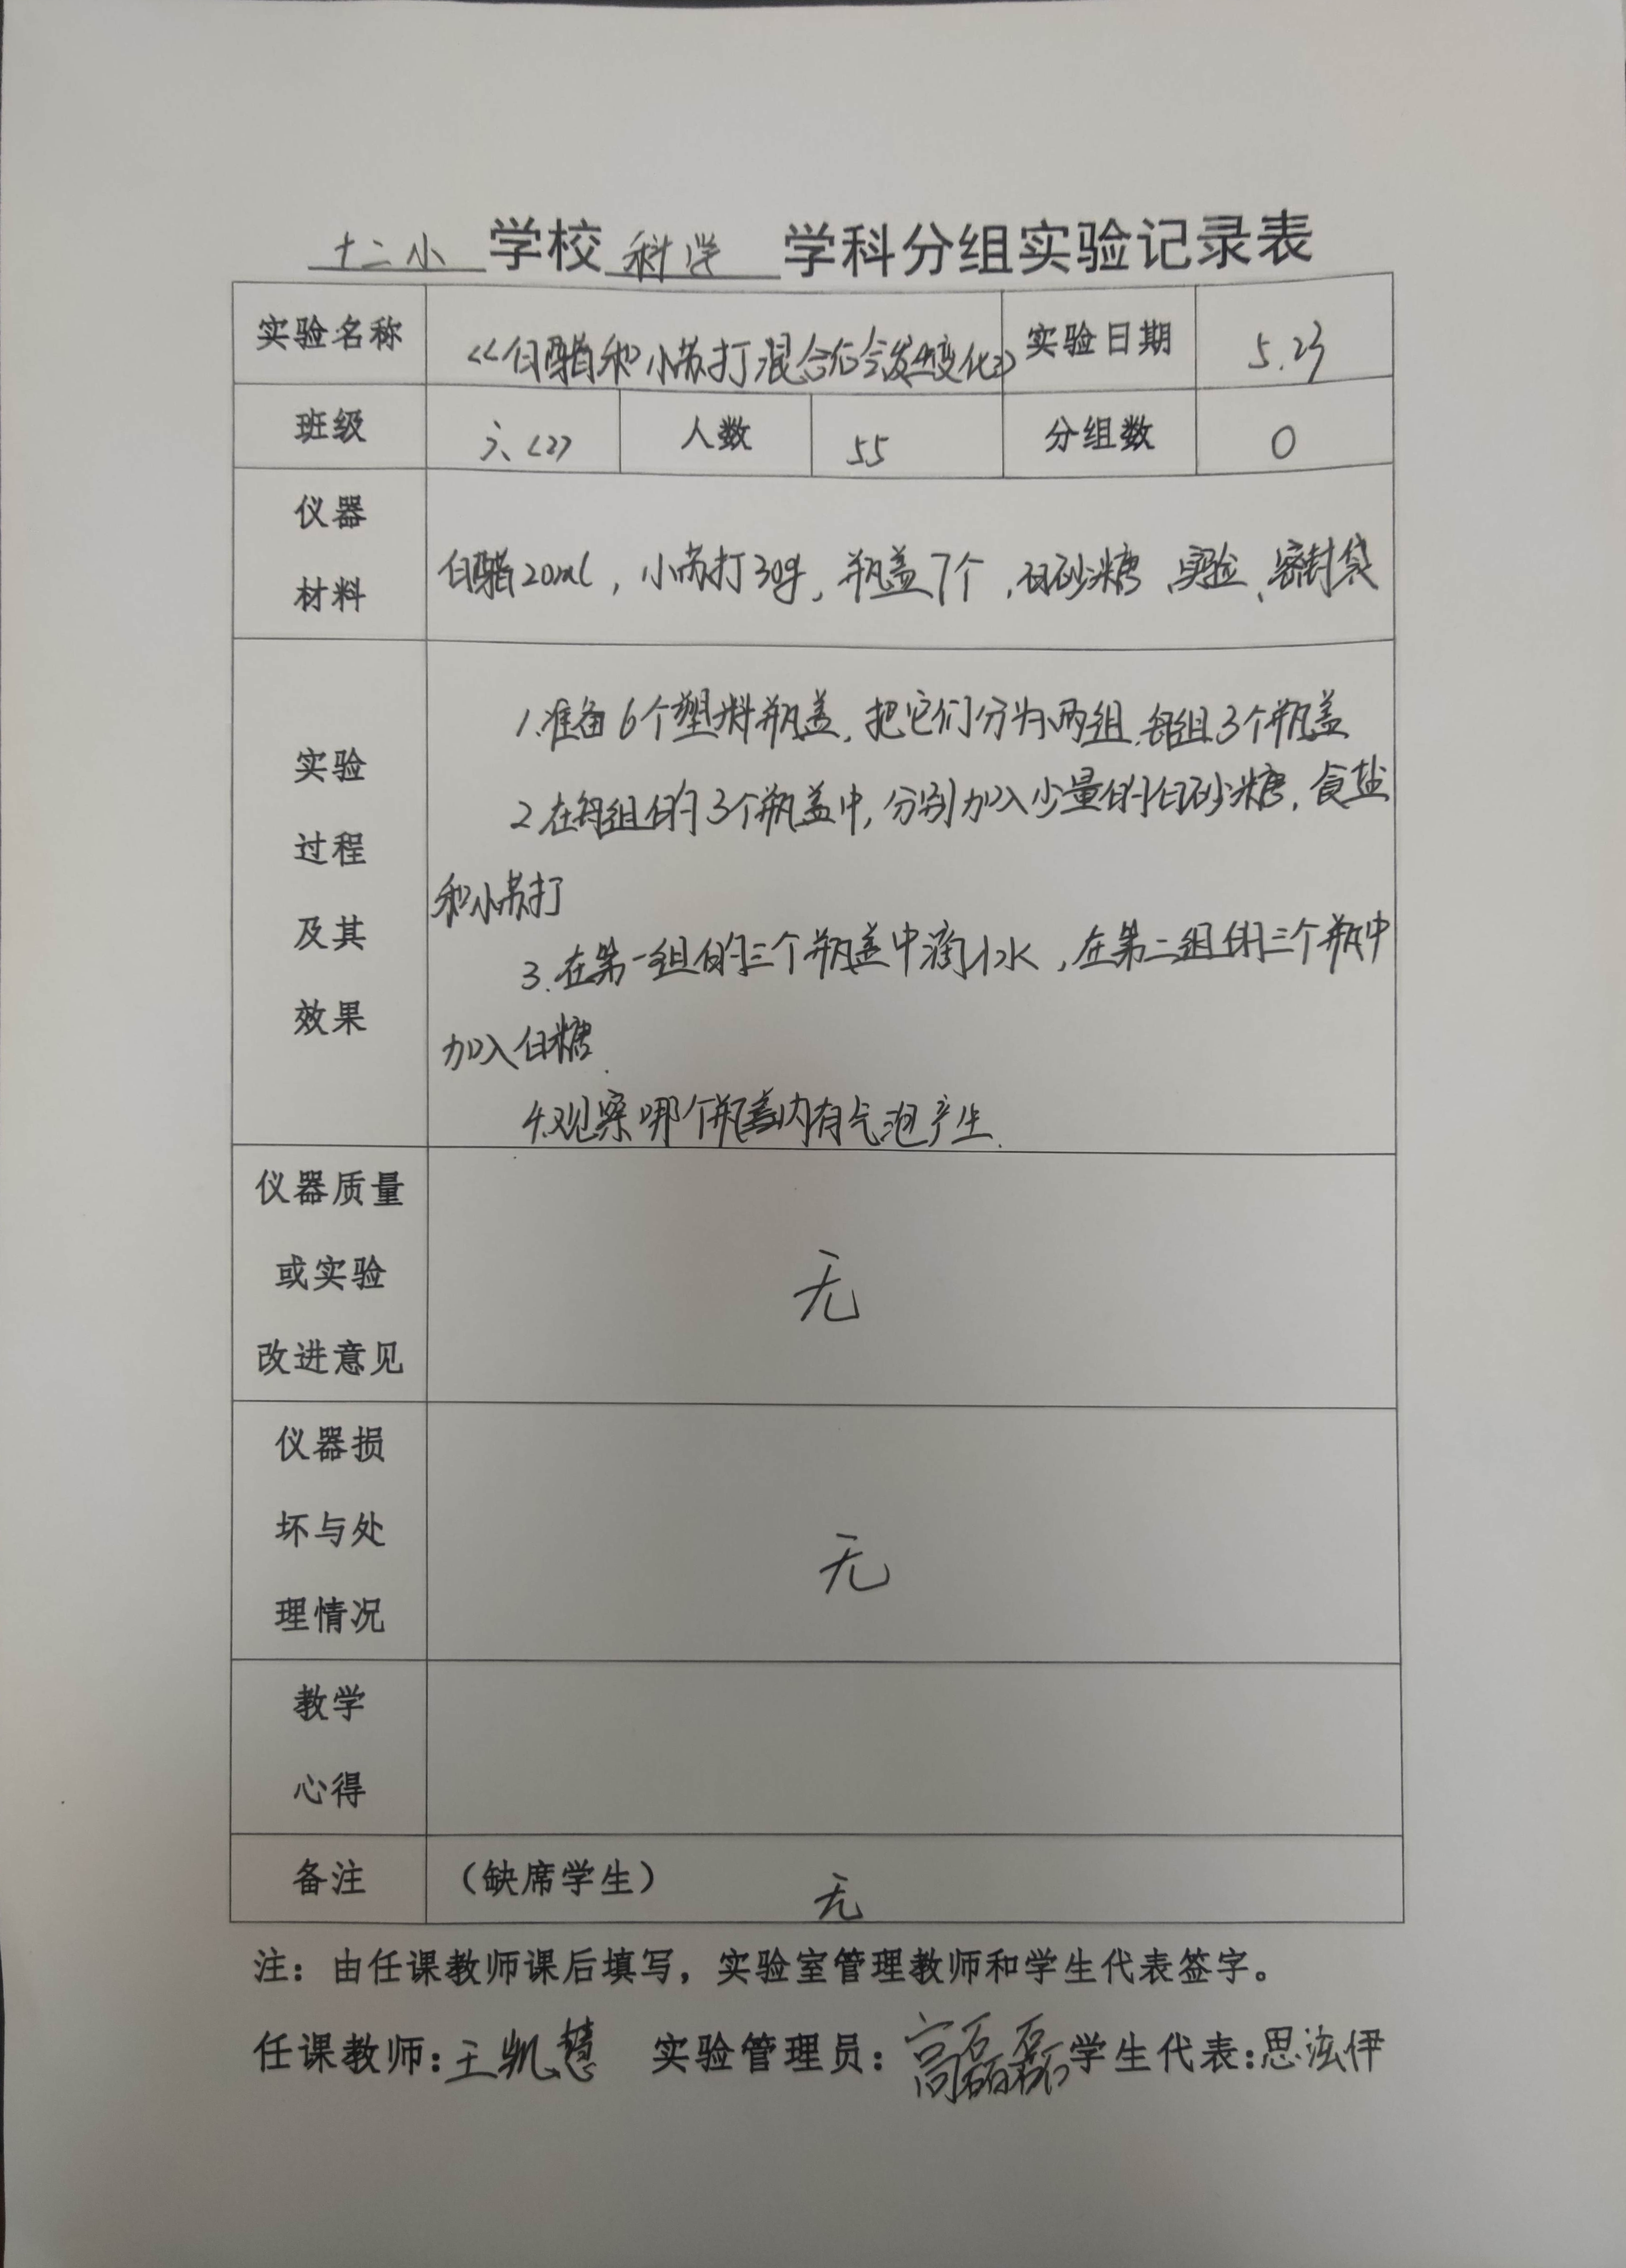 十二小 学校 科学 学科分组实验记录表
实验名称 《白醋和小苏打混合后会发生变化》 实验日期 5.23
班级 六、〈2〉 人数 55 分组数 0
仪器
材料
白醋20ml，小苏打30g，瓶盖7个，白砂糖、实验、密封袋
实验
过程
及其
效果
1.准备6个塑料瓶盖，把它们分为两组，每组3个瓶盖
2.在每组的3个瓶盖中，分别加入少量的白砂糖，食盐
和小苏打
3.在第一组的三个瓶盖中滴水，在第二组的三个瓶中
加入白糖.
4.观察哪个瓶盖内有气泡产生.
仪器质量
或实验
改进意见
无
仪器损
坏与处
理情况
无
教学
心得
备注 （缺席学生） 无
注：由任课教师课后填写，实验室管理教师和学生代表签字。
任课教师:王凯慧 实验管理员：高磊磊 学生代表:思泫伊